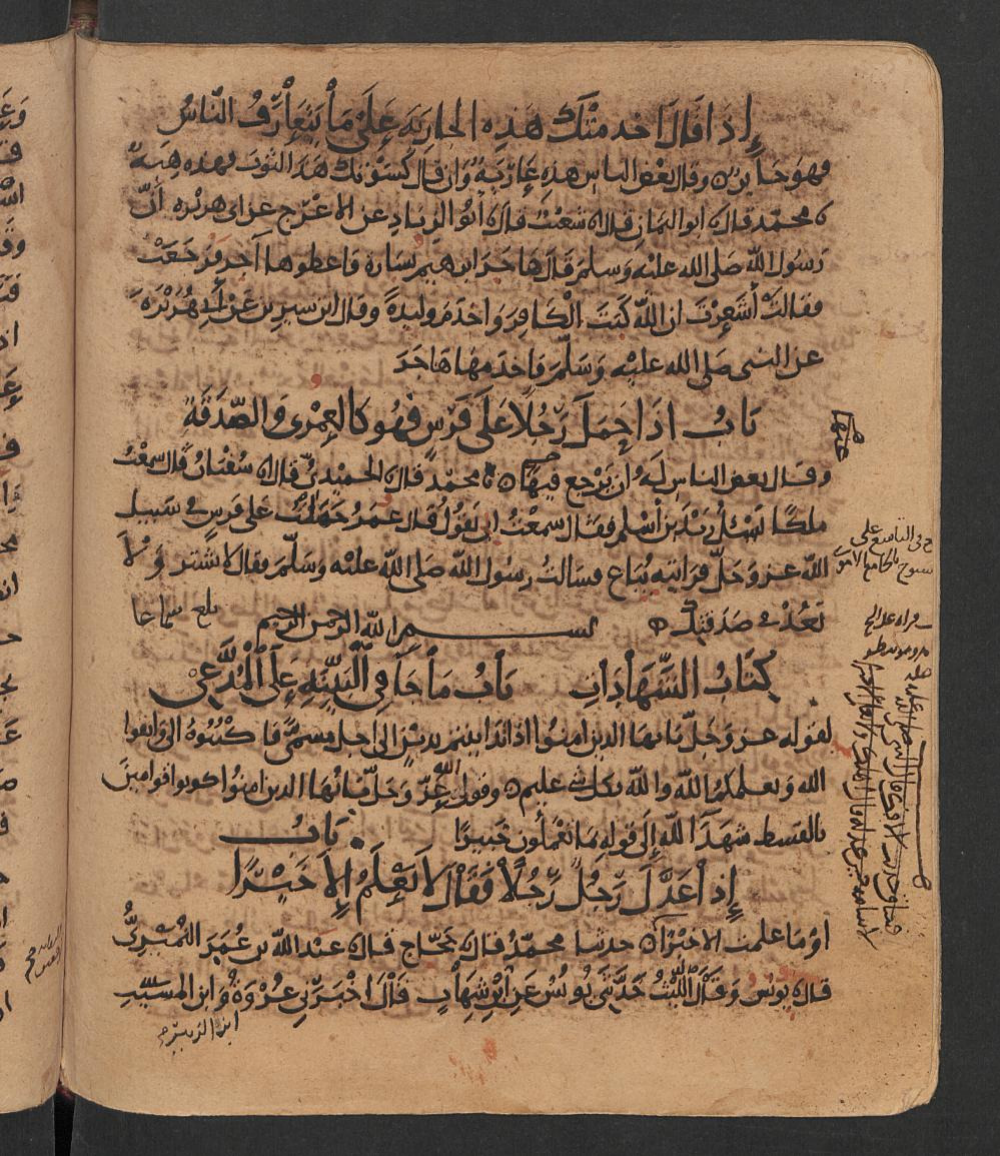 إذا قال أخدمتك هذه الجارية على ما يتعارف الناس
فهو جائز وقال بعض الناس هذه عارية وان قال كسوتك هذا الثوب فهذه هبة
محمد قال ابو اليمان قال شعيب قال أبو الزناد عن الاعرج عن ابي هريرة أن
رسول الله صلى الله عليه وسلم قال هاجر ابراهيم بسارة فاعطوها آجر فرجعت
فقالت أشعرت ان الله كبت الكافر واخدم وليدة وقال ابن سيرين عن أبي هريرة
عن النبي صلى الله عليه وسلم فاخدمها هاجر
باب اذا حمل رجلا على فرس فهو كالعمرى والصدقة
وقال بعض الناس له ان يرجع فيها محمد قال الحميدي قال سفيان قال سمعت
ملكا يسئل زيد بن أسلم فقال سمعت ابي يقول قال عمر حملت على فرس في سبيل
الله عز وجل فرايته يباع فسالت رسول الله صلى الله عليه وسلم فقال لا تشتر ولا
تعد في صدقتك بسم الله الرحمن الرحيم بلغ سماعا
كتاب الشهادات باب ما جا في البينة على المدعي
لقوله عز وجل يايها الذين امنوا اذا تداينتم بدين الى اجل مسمى فاكتبوه الى واتقوا
الله ويعلمكم الله والله بكل شي عليم وقول الله عز وجل يا ايها الذين امنوا كونوا قوامين
بالقسط شهدا لله إلى قوله بما تعملون خبيرا باب
إذا عدل رجل رجلا فقال لا نعلم إلا خيرا
او ما علمت الا خيرا حدثنا محمد قال حجاج قال عبد الله بن عمر النميري
قال يونس وقال الليث حدثني يونس عن ابن شهاب قال اخبرني عروة وابن المسيب
ابن الزبير